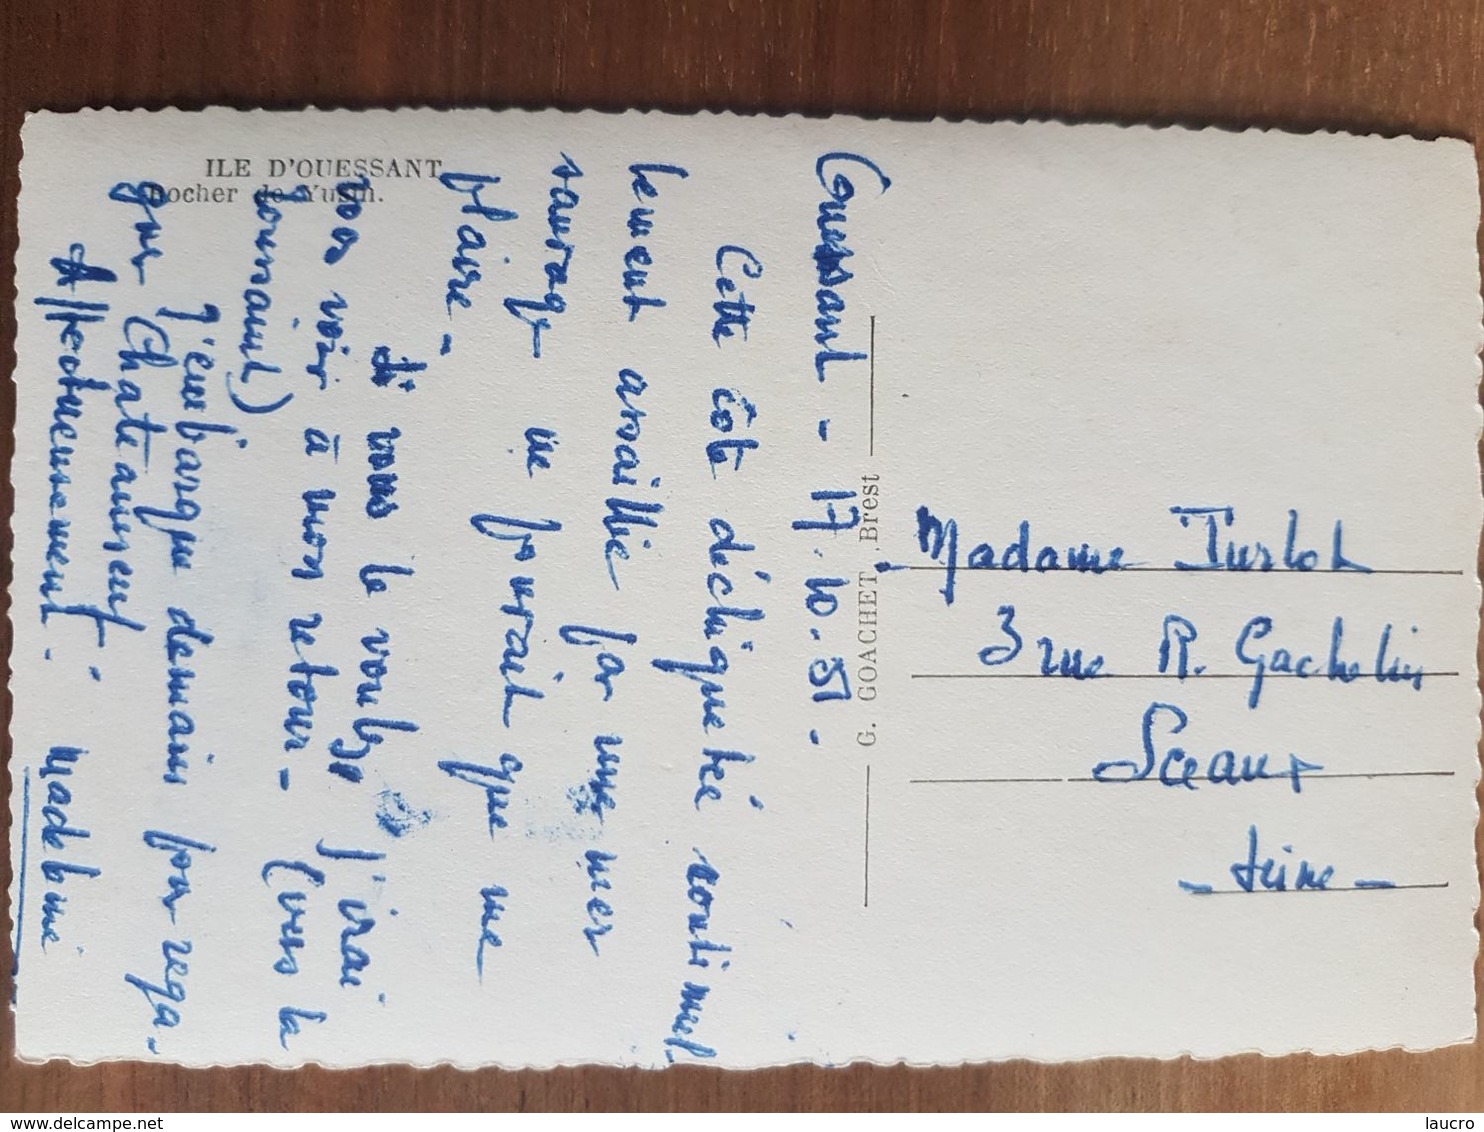 ILE D'OUESSANT
Rocher de Yusin.
G. GOACHET, Brest
Ouessant - 17.10.51 -
Cette côte déchiquetée continuel
lement assaillie par une mer
sauvage ne pourrait que me
plaire -
Si vous le voulez j'irai
vous voir à mon retour - (vers la
Toussaint)
J'embarque demain pour rega-
gner Chateauneuf.
Affectueusement. Madeleine
Madame Turlot
3 rue R. Gachelin
Sceaux
- Seine -
delcampe.net
laucro